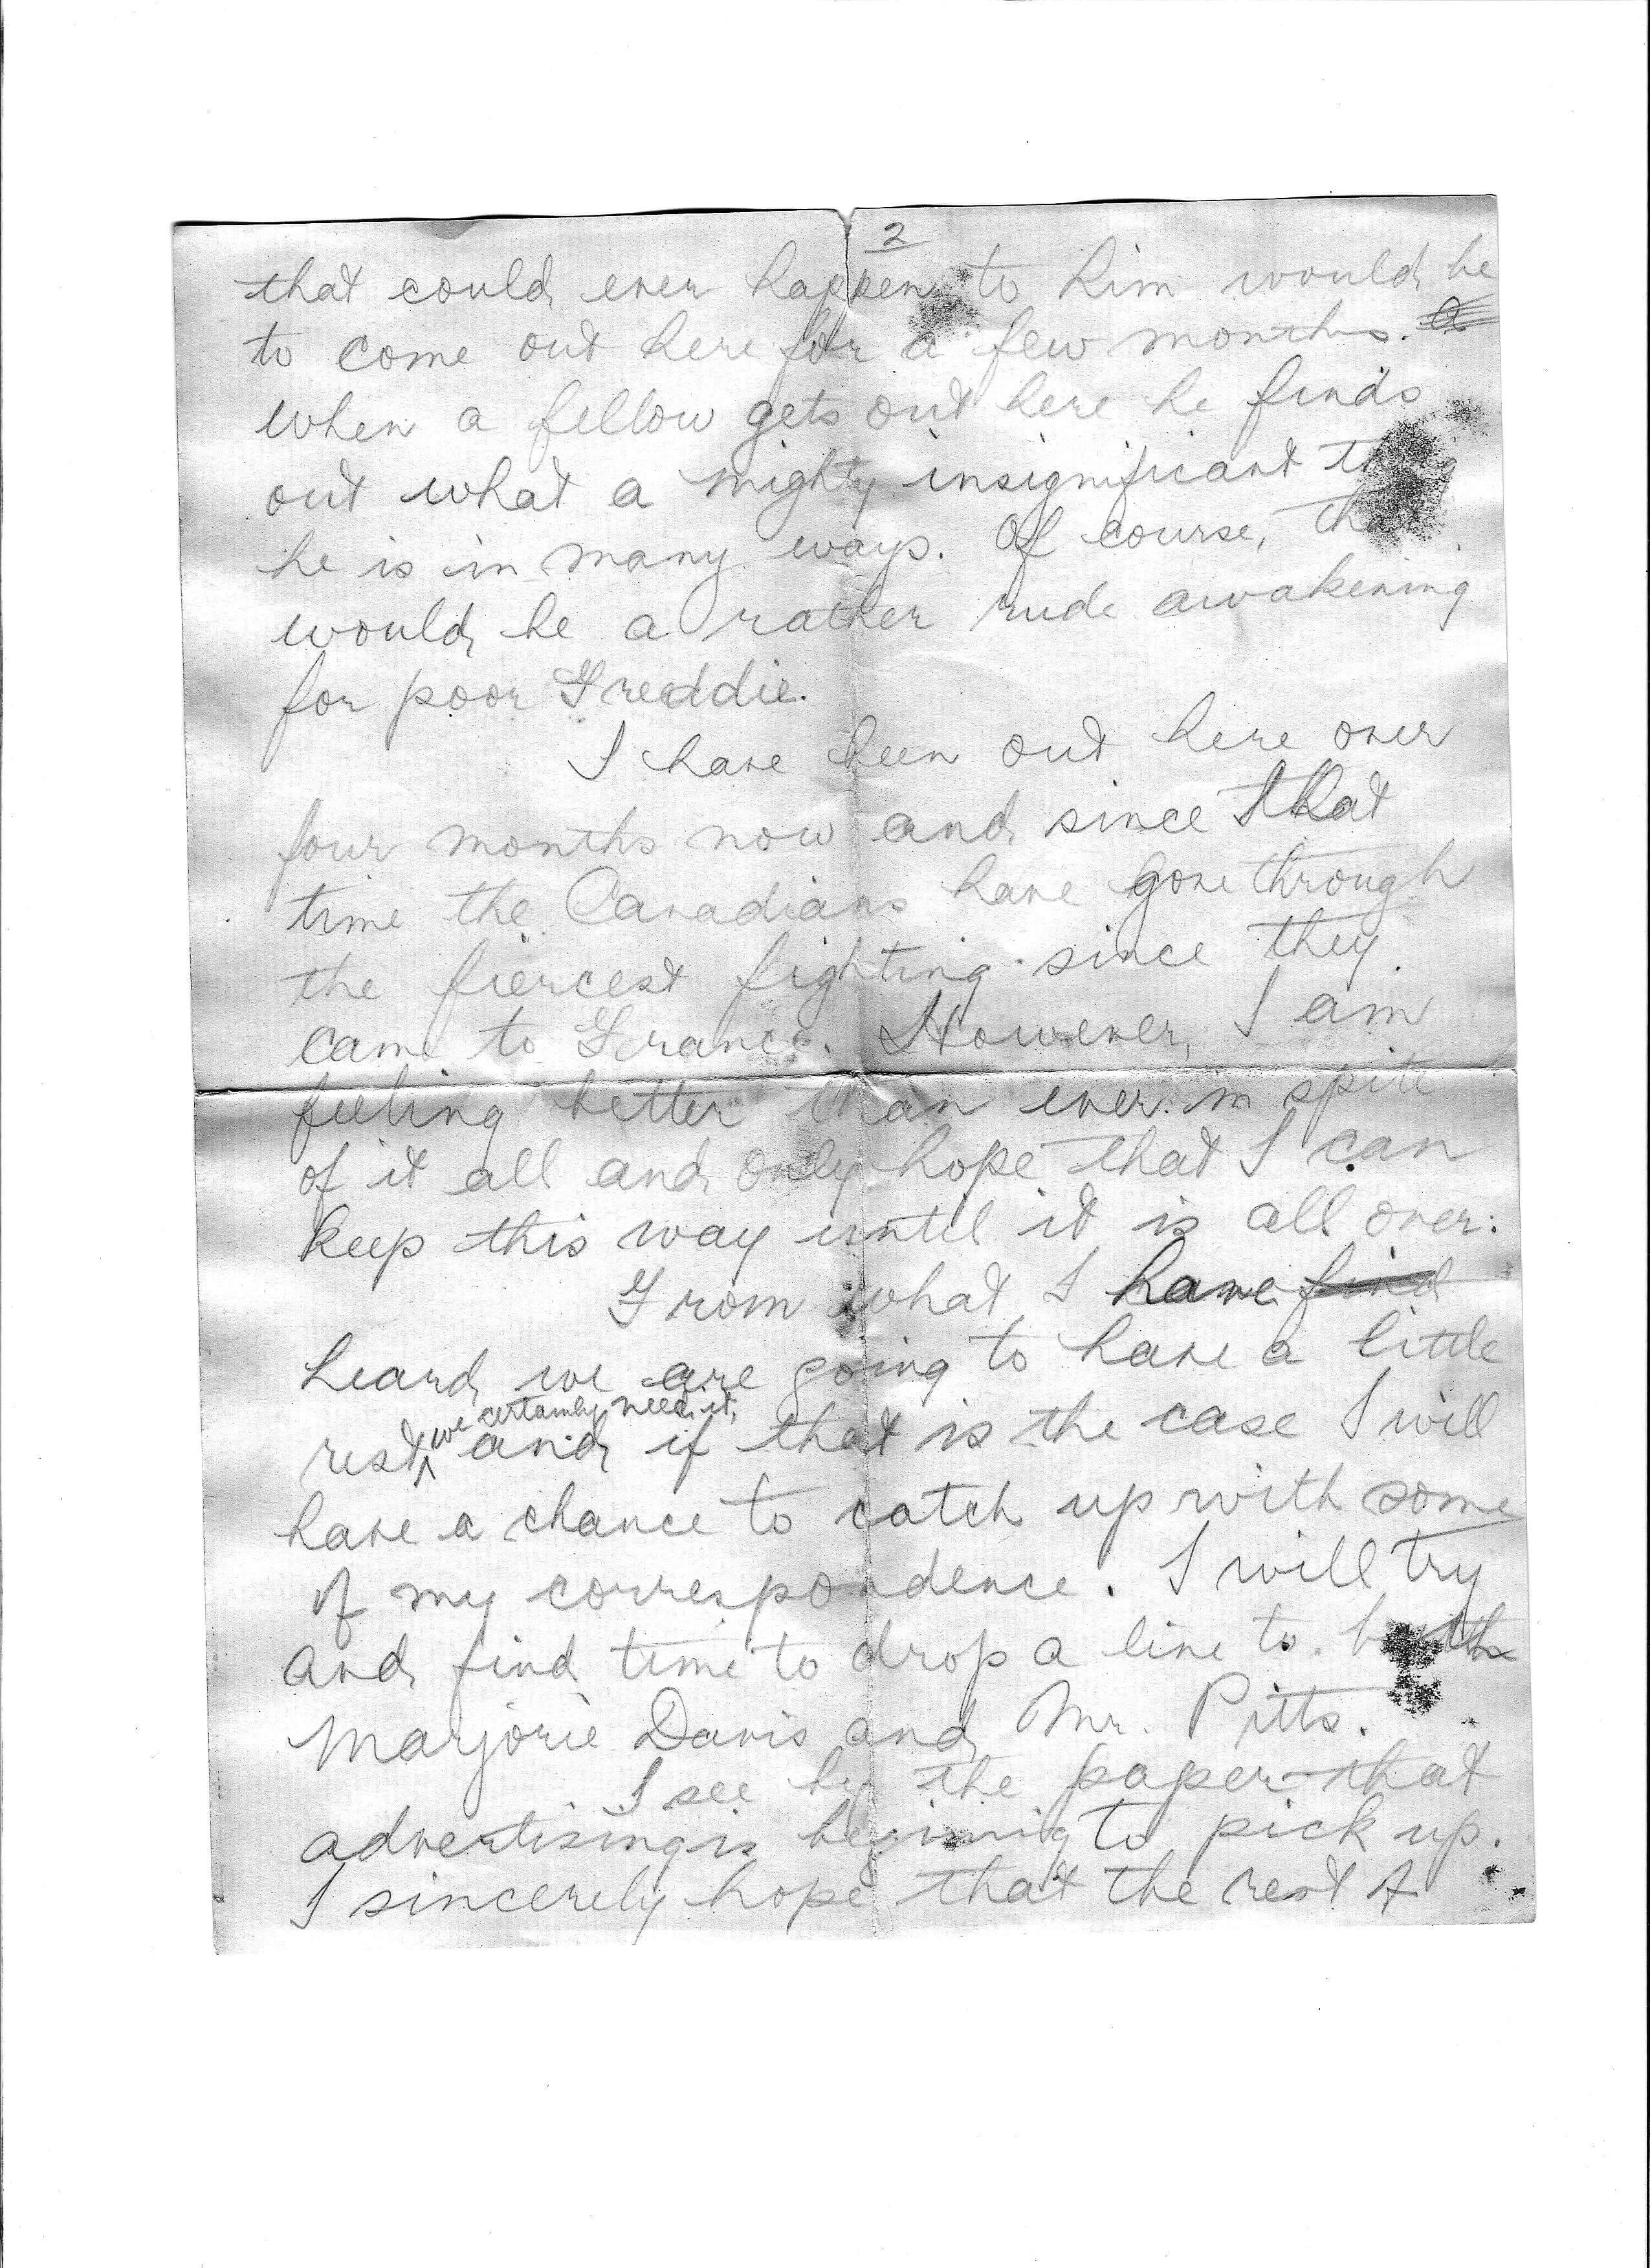 2
that could ever happen to him would be
to come out here for a few months. a
when a fellow gets out here he finds
out what a mighty insignificant thing
he is in many ways. Of course, that
would be a rather rude awakening
for poor Freddie.
I have been out here over
four months now and since that
time the Canadians have gone through
the fiercest fighting since they
came to France. However, I am
feeling better than ever in spite
of it all and only hope that I can
keep this way until it is all over.
From what I have find
heard we are going to have a little
we certainly need it,
rest, and if that is the case I will
have a chance to catch up with some
of my correspondence. I will try
and find time to drop a line to both
Marjorie Davis and Mr. Pitts.
I see by the paper that
advertising is begining to pick up.
I sincerely hope that the rest of